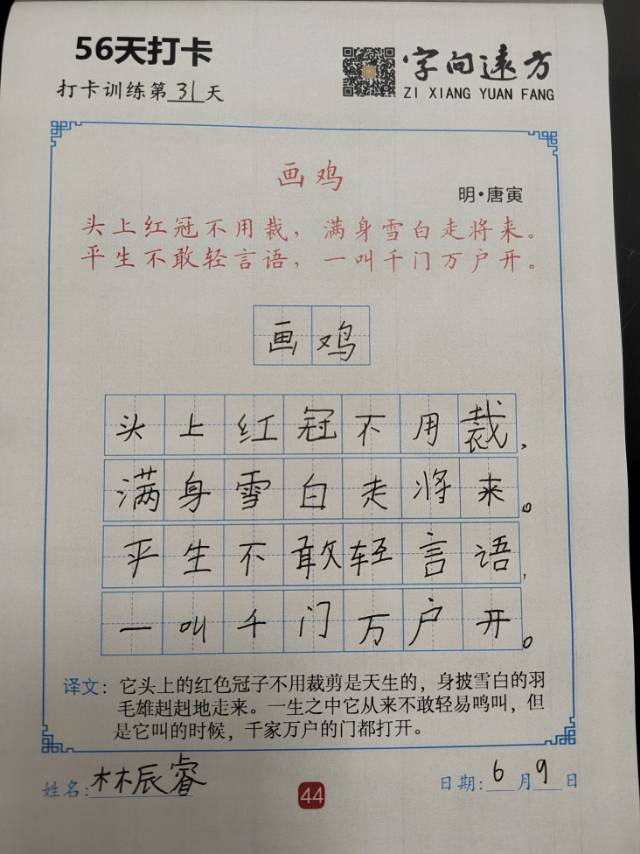 56天打卡
打卡训练第31天
字向远方
ZI XIANG YUAN FANG
画鸡
明·唐寅
头上红冠不用裁，满身雪白走将来。
平生不敢轻言语，一叫千门万户开。
画鸡
头上红冠不用裁，
满身雪白走将来。
平生不敢轻言语，
一叫千门万户开。
译文：它头上的红色冠子不用裁剪是天生的，身披雪白的羽
毛雄赳赳地走来。一生之中它从来不敢轻易鸣叫，但
是它叫的时候，千家万户的门都打开。
姓名：林辰睿
44
日期：6月9日